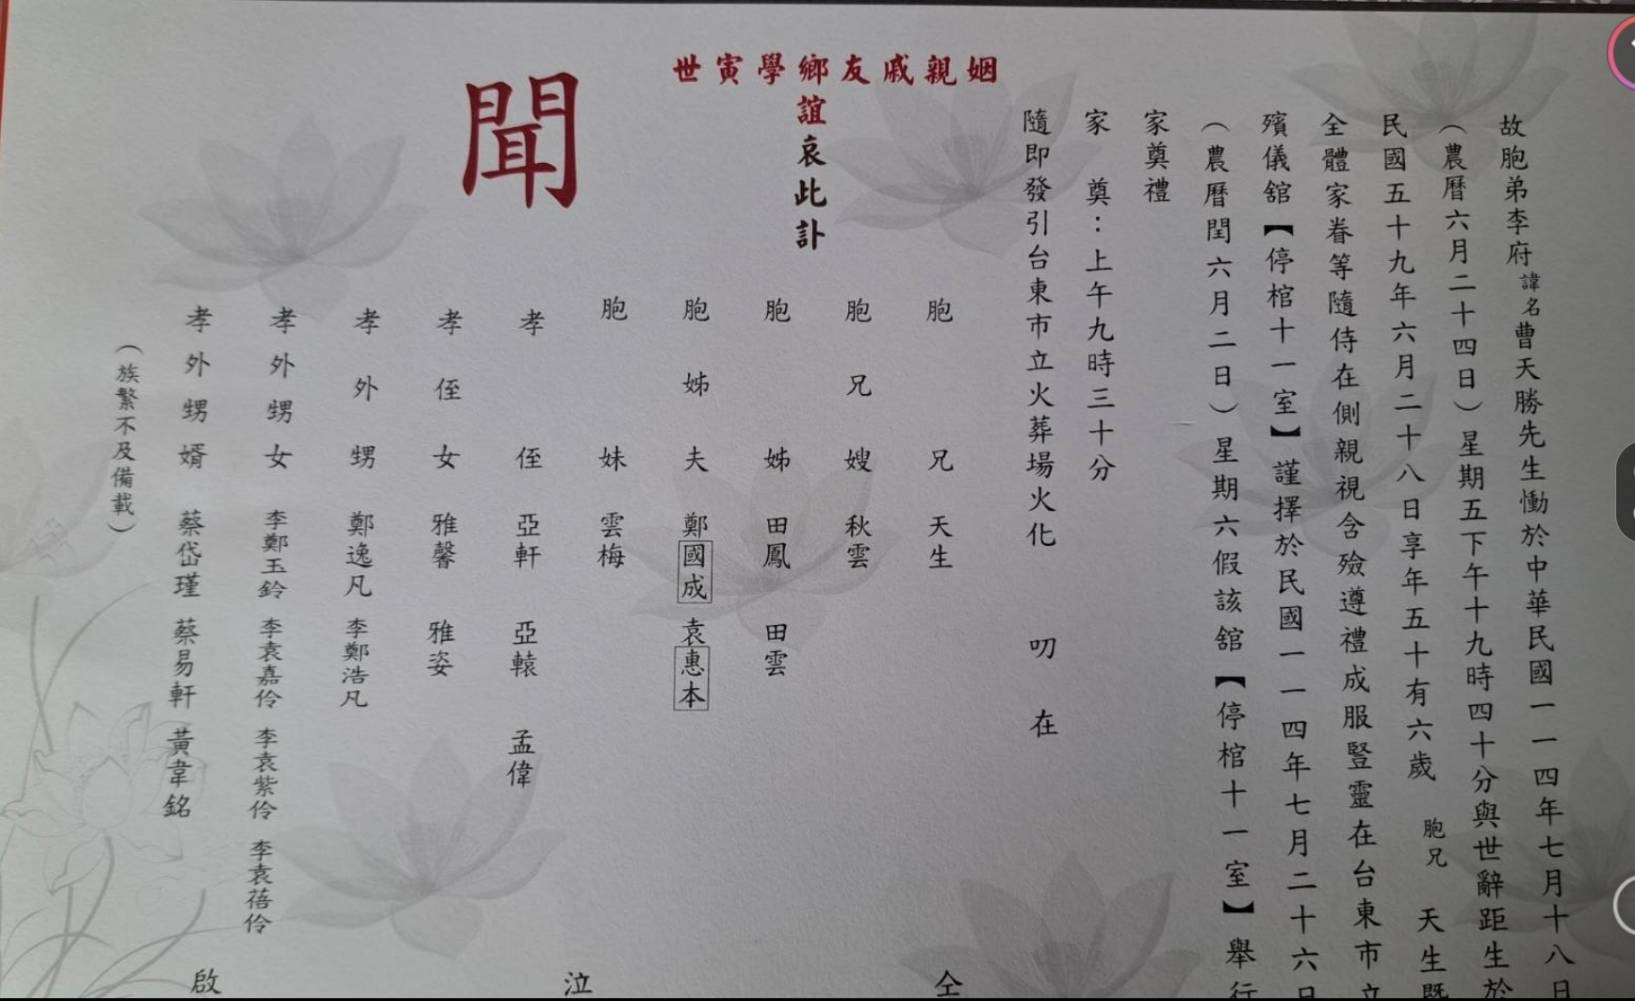 故胞弟李府諱名曹天勝先生慟於中華民國一一四年七月十八日
（農曆六月二十四日）星期五下午十九時四十分與世辭距生於
民國五十九年六月二十八日享年五十有六歲 胞兄 天生既
全體家眷等隨侍在側親視含殮遵禮成服豎靈在台東市立
殯儀舘【停棺十一室】謹擇於民國一一四年七月二十六日
（農曆閏六月二日）星期六假該舘【停棺十一室】舉行
家奠禮
家 奠：上午九時三十分
隨即發引台東市立火葬場火化 叨 在
姻親戚友鄉學寅世
誼哀此訃
聞
胞 兄 天生
胞兄嫂 秋雲
胞 姊 田鳳 田雲
胞姊夫 鄭國成 袁惠本
胞 妹 雲梅
孝 侄 亞軒 亞轅 孟偉
孝侄女 雅馨 雅姿
孝外甥 鄭逸凡 李鄭浩凡
孝外甥女 李鄭玉鈴 李袁嘉伶 李袁紫伶 李袁蓓伶
孝外甥婿 蔡岱瑾 蔡易軒 黃韋銘
（族繁不及備載）
仝 泣 啟